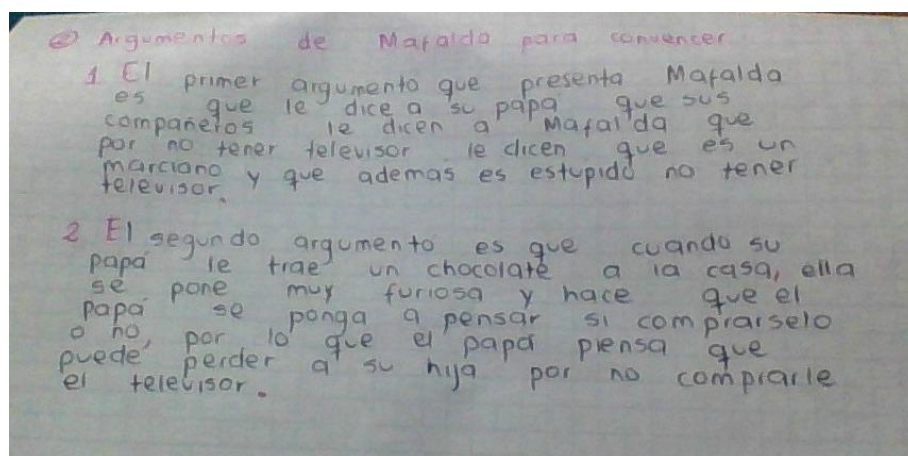 ② Argumentos de Mafalda para convencer
1 El primer argumento que presenta Mafalda
es que le dice a su papá que sus
compañeros le dicen a Mafalda que
por no tener televisor le dicen que es un
marciano y que ademas es estupido no tener
televisor.
2 El segundo argumento es que cuando su
papá le trae un chocolate a la casa, ella
se pone muy furiosa y hace que el
papá se ponga a pensar si comprarselo
o no, por lo que el papá piensa que
puede perder a su hija por no comprarle
el televisor.